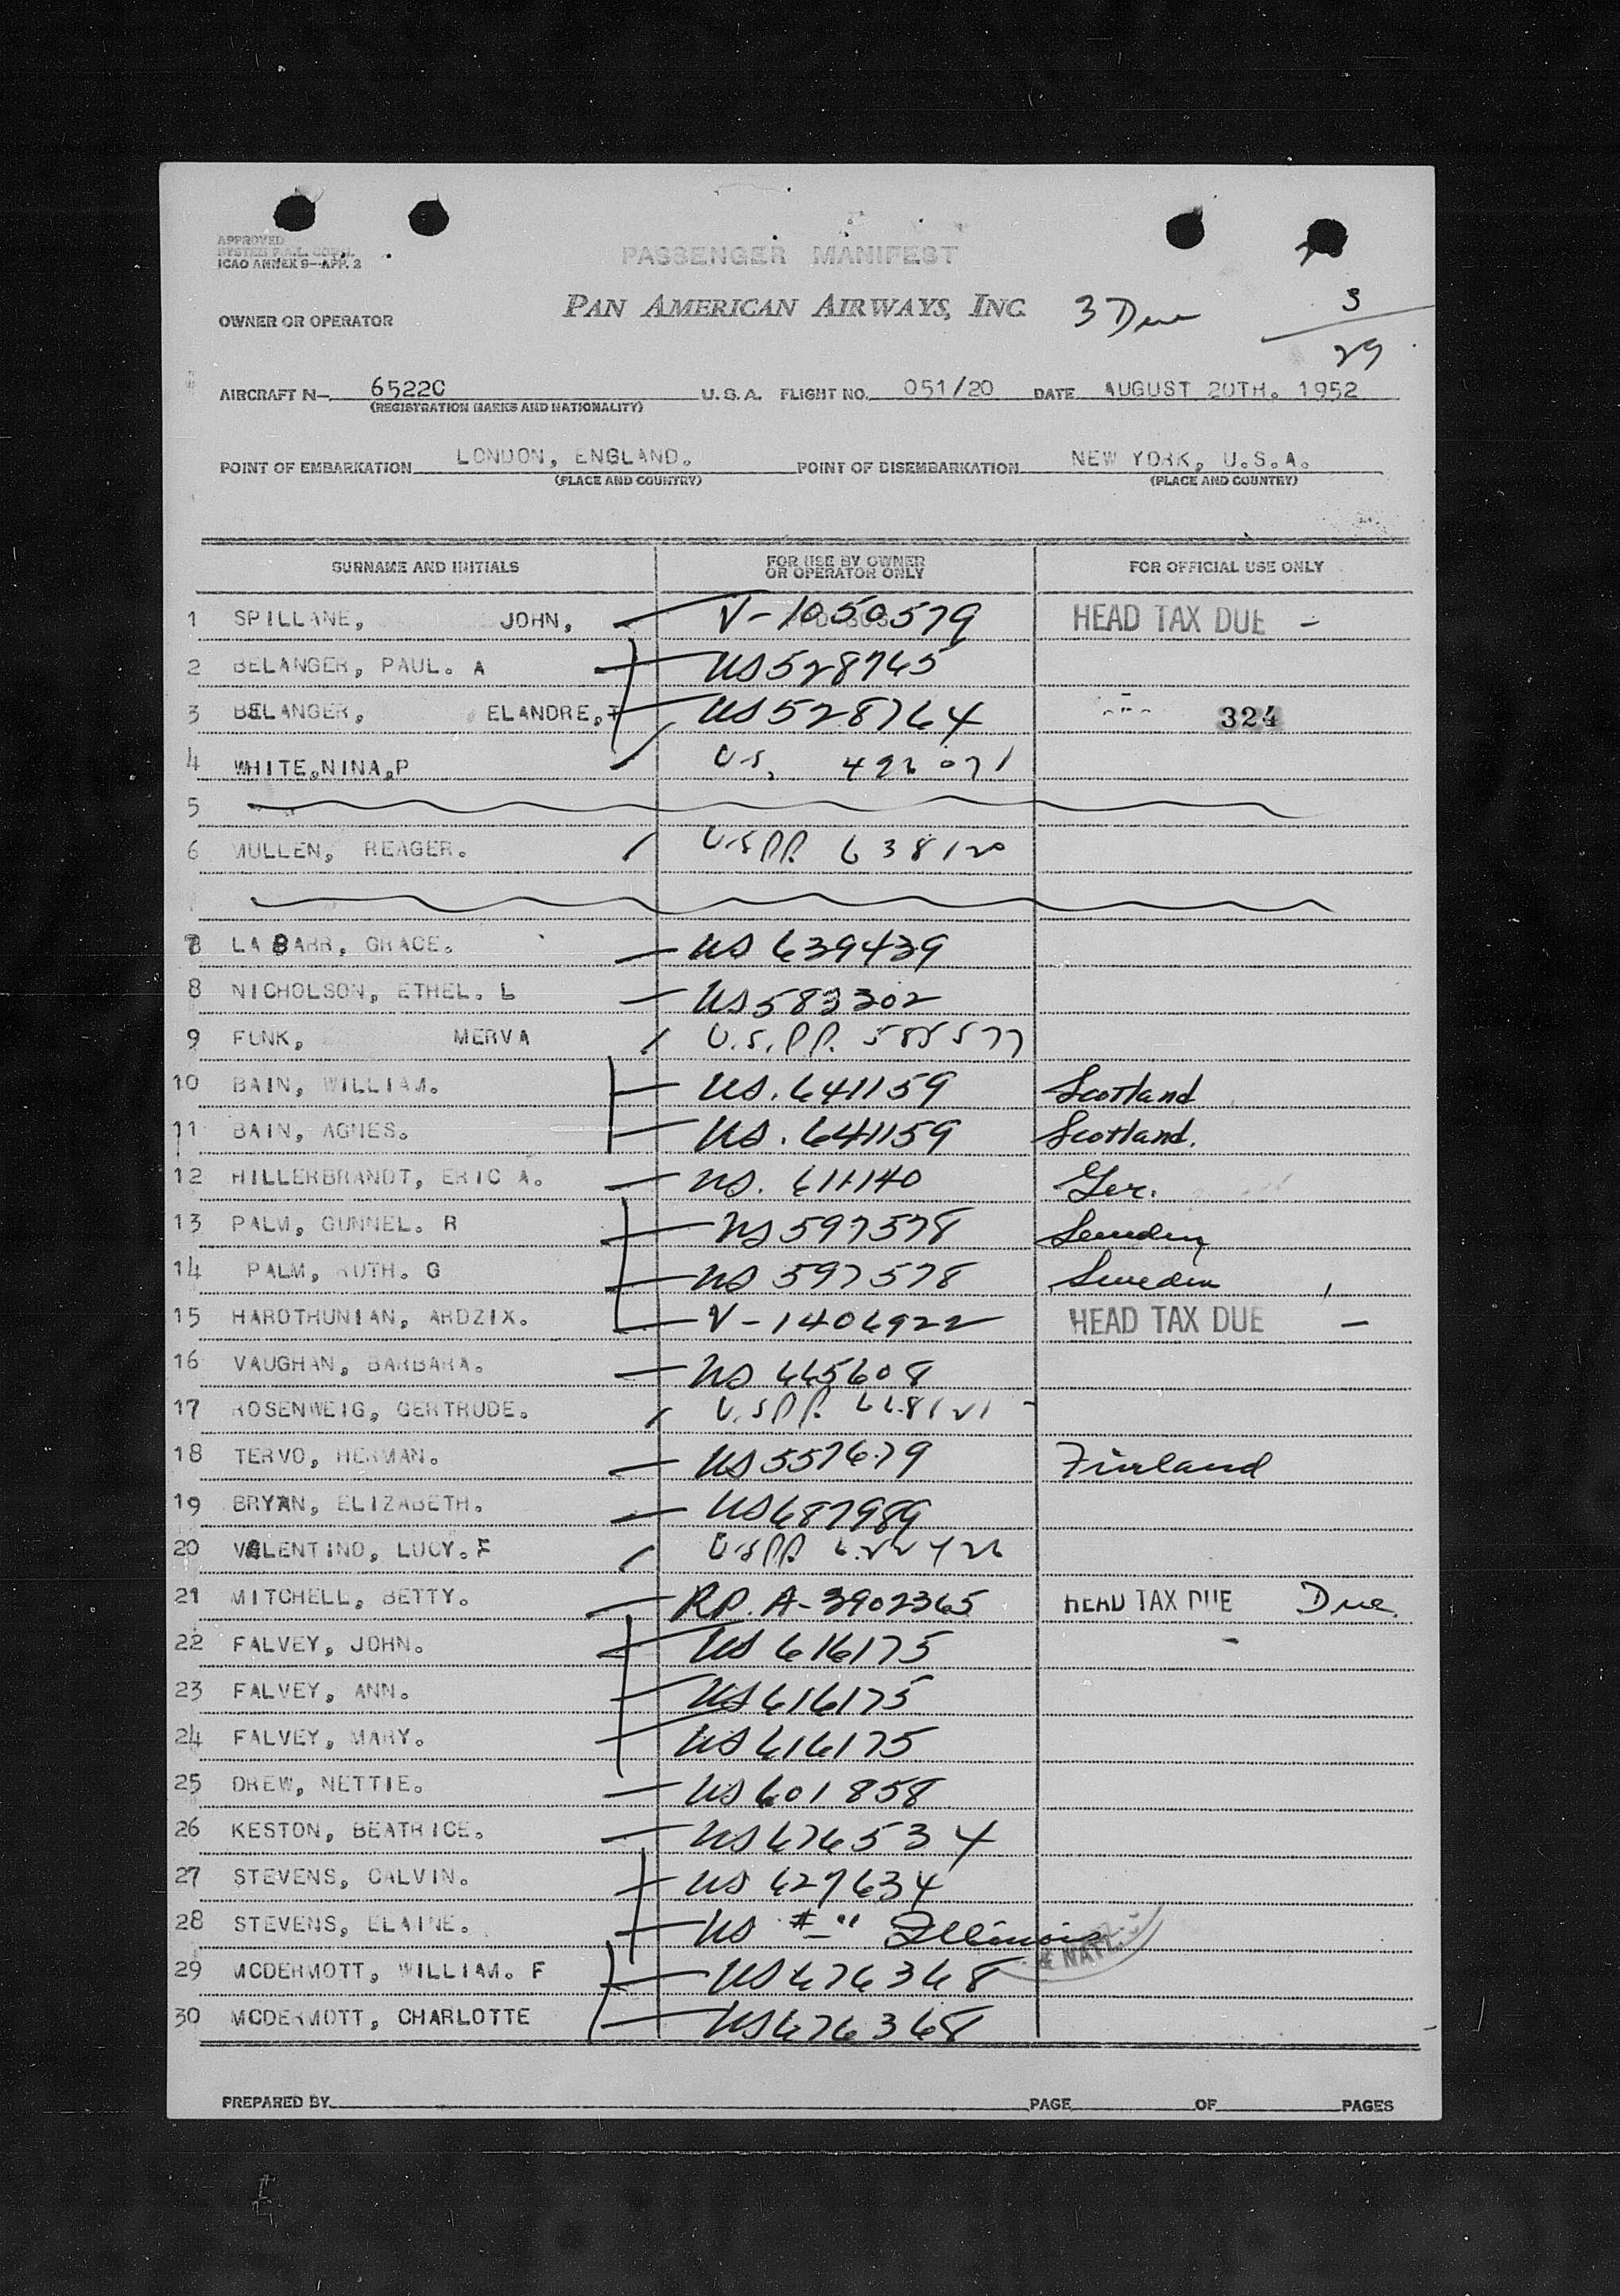 APPROVED
SYSTEM F.A.L. COM'N.
ICAO ANNEX 9—APP. 2
PASSENGER MANIFEST
OWNER OR OPERATOR PAN AMERICAN AIRWAYS, INC. 3 Due 3
29
AIRCRAFT N— 6522C U. S. A. FLIGHT NO. 051/20 DATE AUGUST 20TH. 1952
(REGISTRATION MARKS AND NATIONALITY)
POINT OF EMBARKATION LONDON, ENGLAND. POINT OF DISEMBARKATION NEW YORK, U.S.A.
(PLACE AND COUNTRY) (PLACE AND COUNTRY)
SURNAME AND INITIALS FOR USE BY OWNER OR OPERATOR ONLY FOR OFFICIAL USE ONLY
1 SPILLANE, JOHN, V-1050579 HEAD TAX DUE -
2 BELANGER, PAUL. A US 528765
3 BELANGER, ELANDRE,T US 528764 324
4 WHITE,NINA,P U.S. 496071
5
6 MULLEN, REAGER. U.S.P.P. 638120
7 LA BARR, GRACE. US 639439
8 NICHOLSON, ETHEL. L US 583302
9 FUNK, MERVA U.S.P.P. 585577
10 BAIN, WILLIAM. US. 641159 Scotland
11 BAIN, AGNES. US. 641159 Scotland.
12 HILLERBRANDT, ERIC A. US. 611140 Ger.
13 PALM, GUNNEL. R US 597578 Sweden
14 PALM, RUTH. G US 597578 Sweden
15 HAROTHUNIAN, ARDZIX. V-1406922 HEAD TAX DUE —
16 VAUGHAN, BARBARA. US 665608
17 ROSENWEIG, GERTRUDE. U.S.P.P. 668121 -
18 TERVO, HERMAN. US 557679 Finland
19 BRYAN, ELIZABETH. US 687989
20 VALENTINO, LUCY. F U.S.P.P.
21 MITCHELL, BETTY. RP. A-3902365 HEAD TAX DUE Due
22 FALVEY, JOHN. US 616175 -
23 FALVEY, ANN. US 616175
24 FALVEY, MARY. US 616175
25 DREW, NETTIE. US 601858
26 KESTON, BEATRICE. US 676534
27 STEVENS, CALVIN. US 627634
28 STEVENS, ELAINE. US # " Illinois
& NATZ.
29 MCDERMOTT, WILLIAM. F US 676368
30 MCDERMOTT, CHARLOTTE US 676368
PREPARED BY PAGE OF PAGES